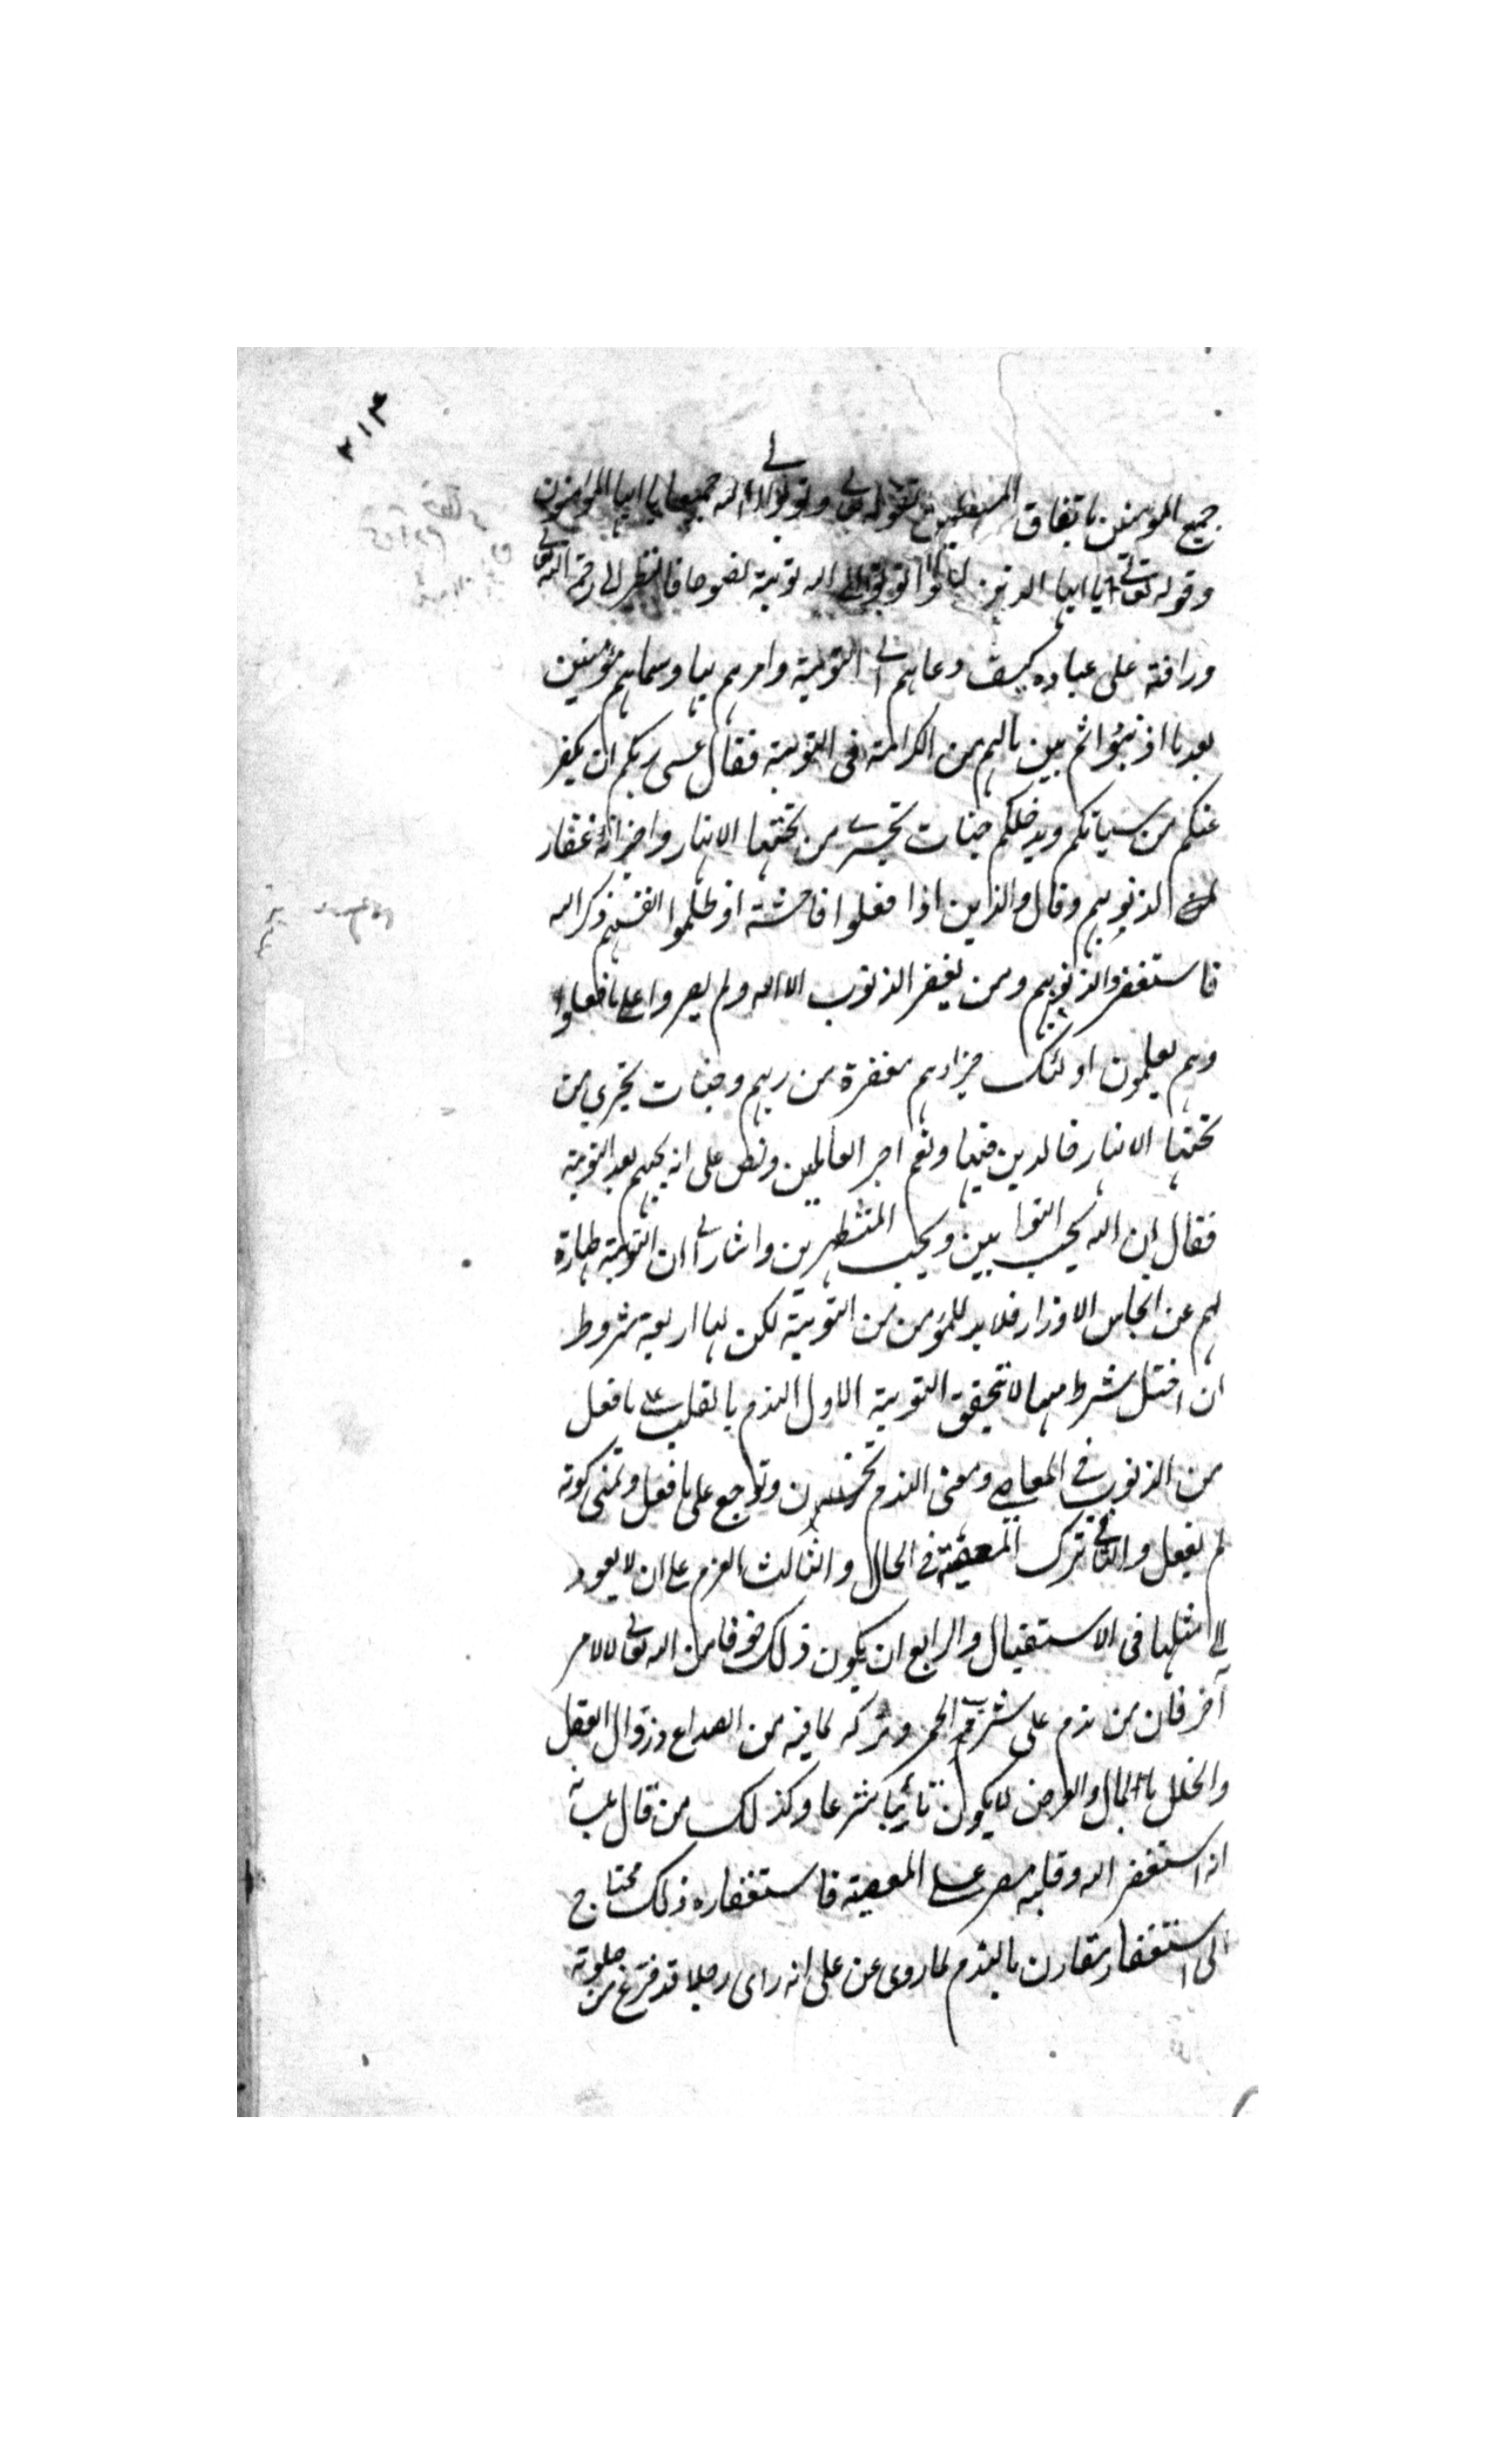 ٢١٣
جميع المؤمنين باتفاق المسلمين لقوله تعالى وتوبوا الى الله جميعا يا ايها المؤمنون
وقوله تعالى يا ايها الذين امنوا توبوا الى الله توبة نصوحا فانظر الى رحمة الله تعالى
ورافة على عباده كيف دعاهم الى التوبة وامرهم بها وسماهم مؤمنين
بعد ما اذنبوا ثم بين مالهم من الكرامة فى التوبة فقال عسى ربكم ان يكفر
عنكم من سياتكم ويدخلكم جنات تجرى من تحتها الانهار واخبر انه غفار
الذنوبهم وقال والذين اذا فعلوا فاحشة او ظلموا انفسهم ذكر الله
فاستغفروا لذنوبهم ومن يغفر الذنوب الا الله ولم يصروا على ما فعلوا
وهم يعلمون اولئك جزاؤهم مغفرة من ربهم وجنات تجري من
تحتها الانهار خالدين فيها ونعم اجر العاملين ونص على انه يحبهم بعد التوبة
فقال ان الله يحب التوابين ويحب المتطهرين واشار الى ان التوبة طهارة
لهم عن انجاس الاوزار فلا بد للمؤمن من التوبة لكن لها اربعة شروط
ان اختل شرط منها لا تتحقق التوبة الاول الندم بالقلب على ما فعل
من الذنوب فى المعاصى ومعنى الندم تحزن وتوجع على ما فعل وتمنى كونه
لم يفعل والثانى ترك المعصية فى الحال والثالث العزم على ان لا يعود
الى مثلها فى الاستقبال والرابع ان يكون ذلك خوفا من الله تعالى لا لامر
آخر فان من ندم على شرب الخمر وتركه لما فيه من الصداع وزوال العقل
والخلل بالمال والعرض لا يكون تائبا شرعا وكذلك من قال بلسانه
انه استغفر الله وقلبه مصر على المعصية فاستغفاره ذلك محتاج
الى استغفار مقارن بالندم لما روى عن على انه راى رجلا قد فرغ من صلوته